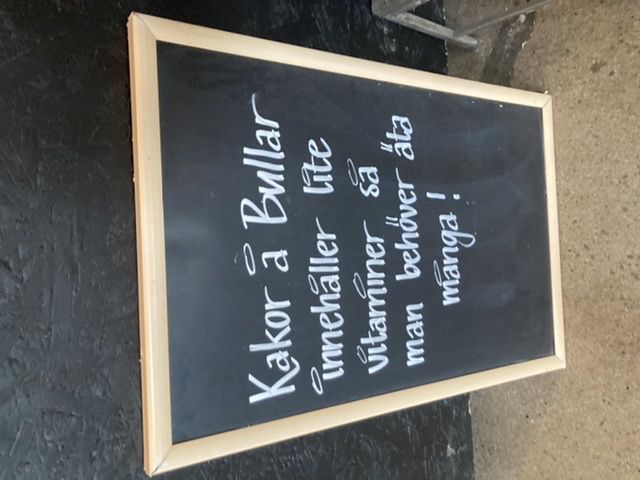 Kakor å Bullar
innehåller lite
vitaminer så
man behöver äta
många!